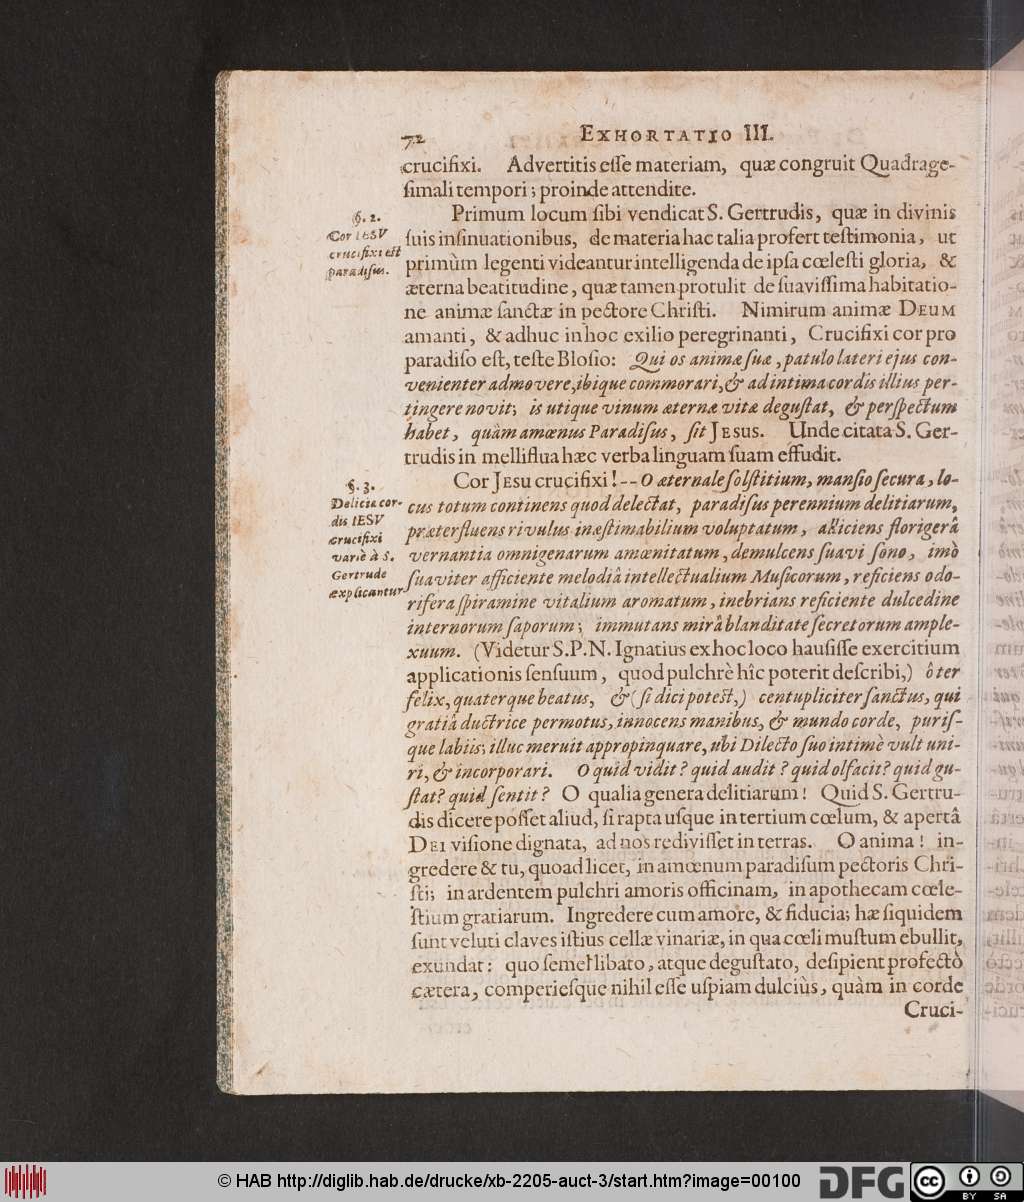 72 EXHORTATIO III.
crucifixi. Advertitis eſſe materiam, quæ congruit Quadrage-
ſimali tempori; proinde attendite.
§. 2.
Cor IESV
crucifixi eſt
paradiſus.
Primum locum ſibi vendicat S. Gertrudis, quæ in divinis
ſuis inſinuationibus, de materia hac talia profert teſtimonia, ut
primùm legenti videantur intelligenda de ipſa cœleſti gloria, &
æterna beatitudine, quæ tamen protulit de ſuaviſſima habitatio-
ne animæ ſanctæ in pectore Chriſti. Nimirum animæ DEUM
amanti, & adhuc in hoc exilio peregrinanti, Crucifixi cor pro
paradiſo eſt, teſte Bloſio: Qui os animæ ſuæ, patulo lateri ejus con-
venienter admovere, ibique commorari, & ad intima cordis illius per-
tingere novit; is utique vinum æternæ vitæ deguſtat, & perſpectum
habet, quàm amœnus Paradiſus, ſit JESUS. Unde citata S. Ger-
trudis in melliflua hæc verba linguam ſuam effudit.
§. 3.
Deliciæ cor-
dis IESV
crucifixi
variè à S.
Gertrude
explicantur.
Cor JESU crucifixi! -- O æternale ſolſtitium, manſio ſecura, lo-
cus totum continens quod delectat, paradiſus perennium delitiarum,
præterfluens rivulus inæſtimabilium voluptatum, alliciens florigerâ
vernantia omnigenarum amœnitatum, demulcens ſuavi ſono, imò
ſuaviter afficiente melodiâ intellectualium Muſicorum, reficiens odo-
rifera ſpiramine vitalium aromatum, inebrians reficiente dulcedine
internorum ſaporum; immutans mirâ blanditate ſecretorum ample-
xuum. (Videtur S. P. N. Ignatius ex hoc loco hauſiſſe exercitium
applicationis ſenſuum, quod pulchrè hîc poterit deſcribi,) ô ter
felix, quaterque beatus, & (ſi dici poteſt,) centupliciter ſanctus, qui
gratiâ ductrice permotus, innocens manibus, & mundo corde, puriſ-
que labiis; illuc meruit appropinquare, ubi Dilecto ſuo intimè vult uni-
ri, & incorporari. O quid vidit? quid audit? quid olfacit? quid gu-
ſtat? quid ſentit? O qualia genera delitiarum! Quid S. Gertru-
dis dicere poſſet aliud, ſi rapta uſque in tertium cœlum, & apertâ
DEI viſione dignata, ad nos rediviſſet in terras. O anima! in-
gredere & tu, quoad licet, in amœnum paradiſum pectoris Chri-
ſti; in ardentem pulchri amoris officinam, in apothecam cœle-
ſtium gratiarum. Ingredere cum amore, & fiducia; hæ ſiquidem
ſunt veluti claves iſtius cellæ vinariæ, in qua cœli muſtum ebullit,
exundat: quo ſemel libato, atque deguſtato, deſipient profectò
cætera, comperieſque nihil eſſe uſpiam dulciùs, quàm in corde
Cruci-
© HAB http://diglib.hab.de/drucke/xb-2205-auct-3/start.htm?image=00100
DFG
cc
BY SA